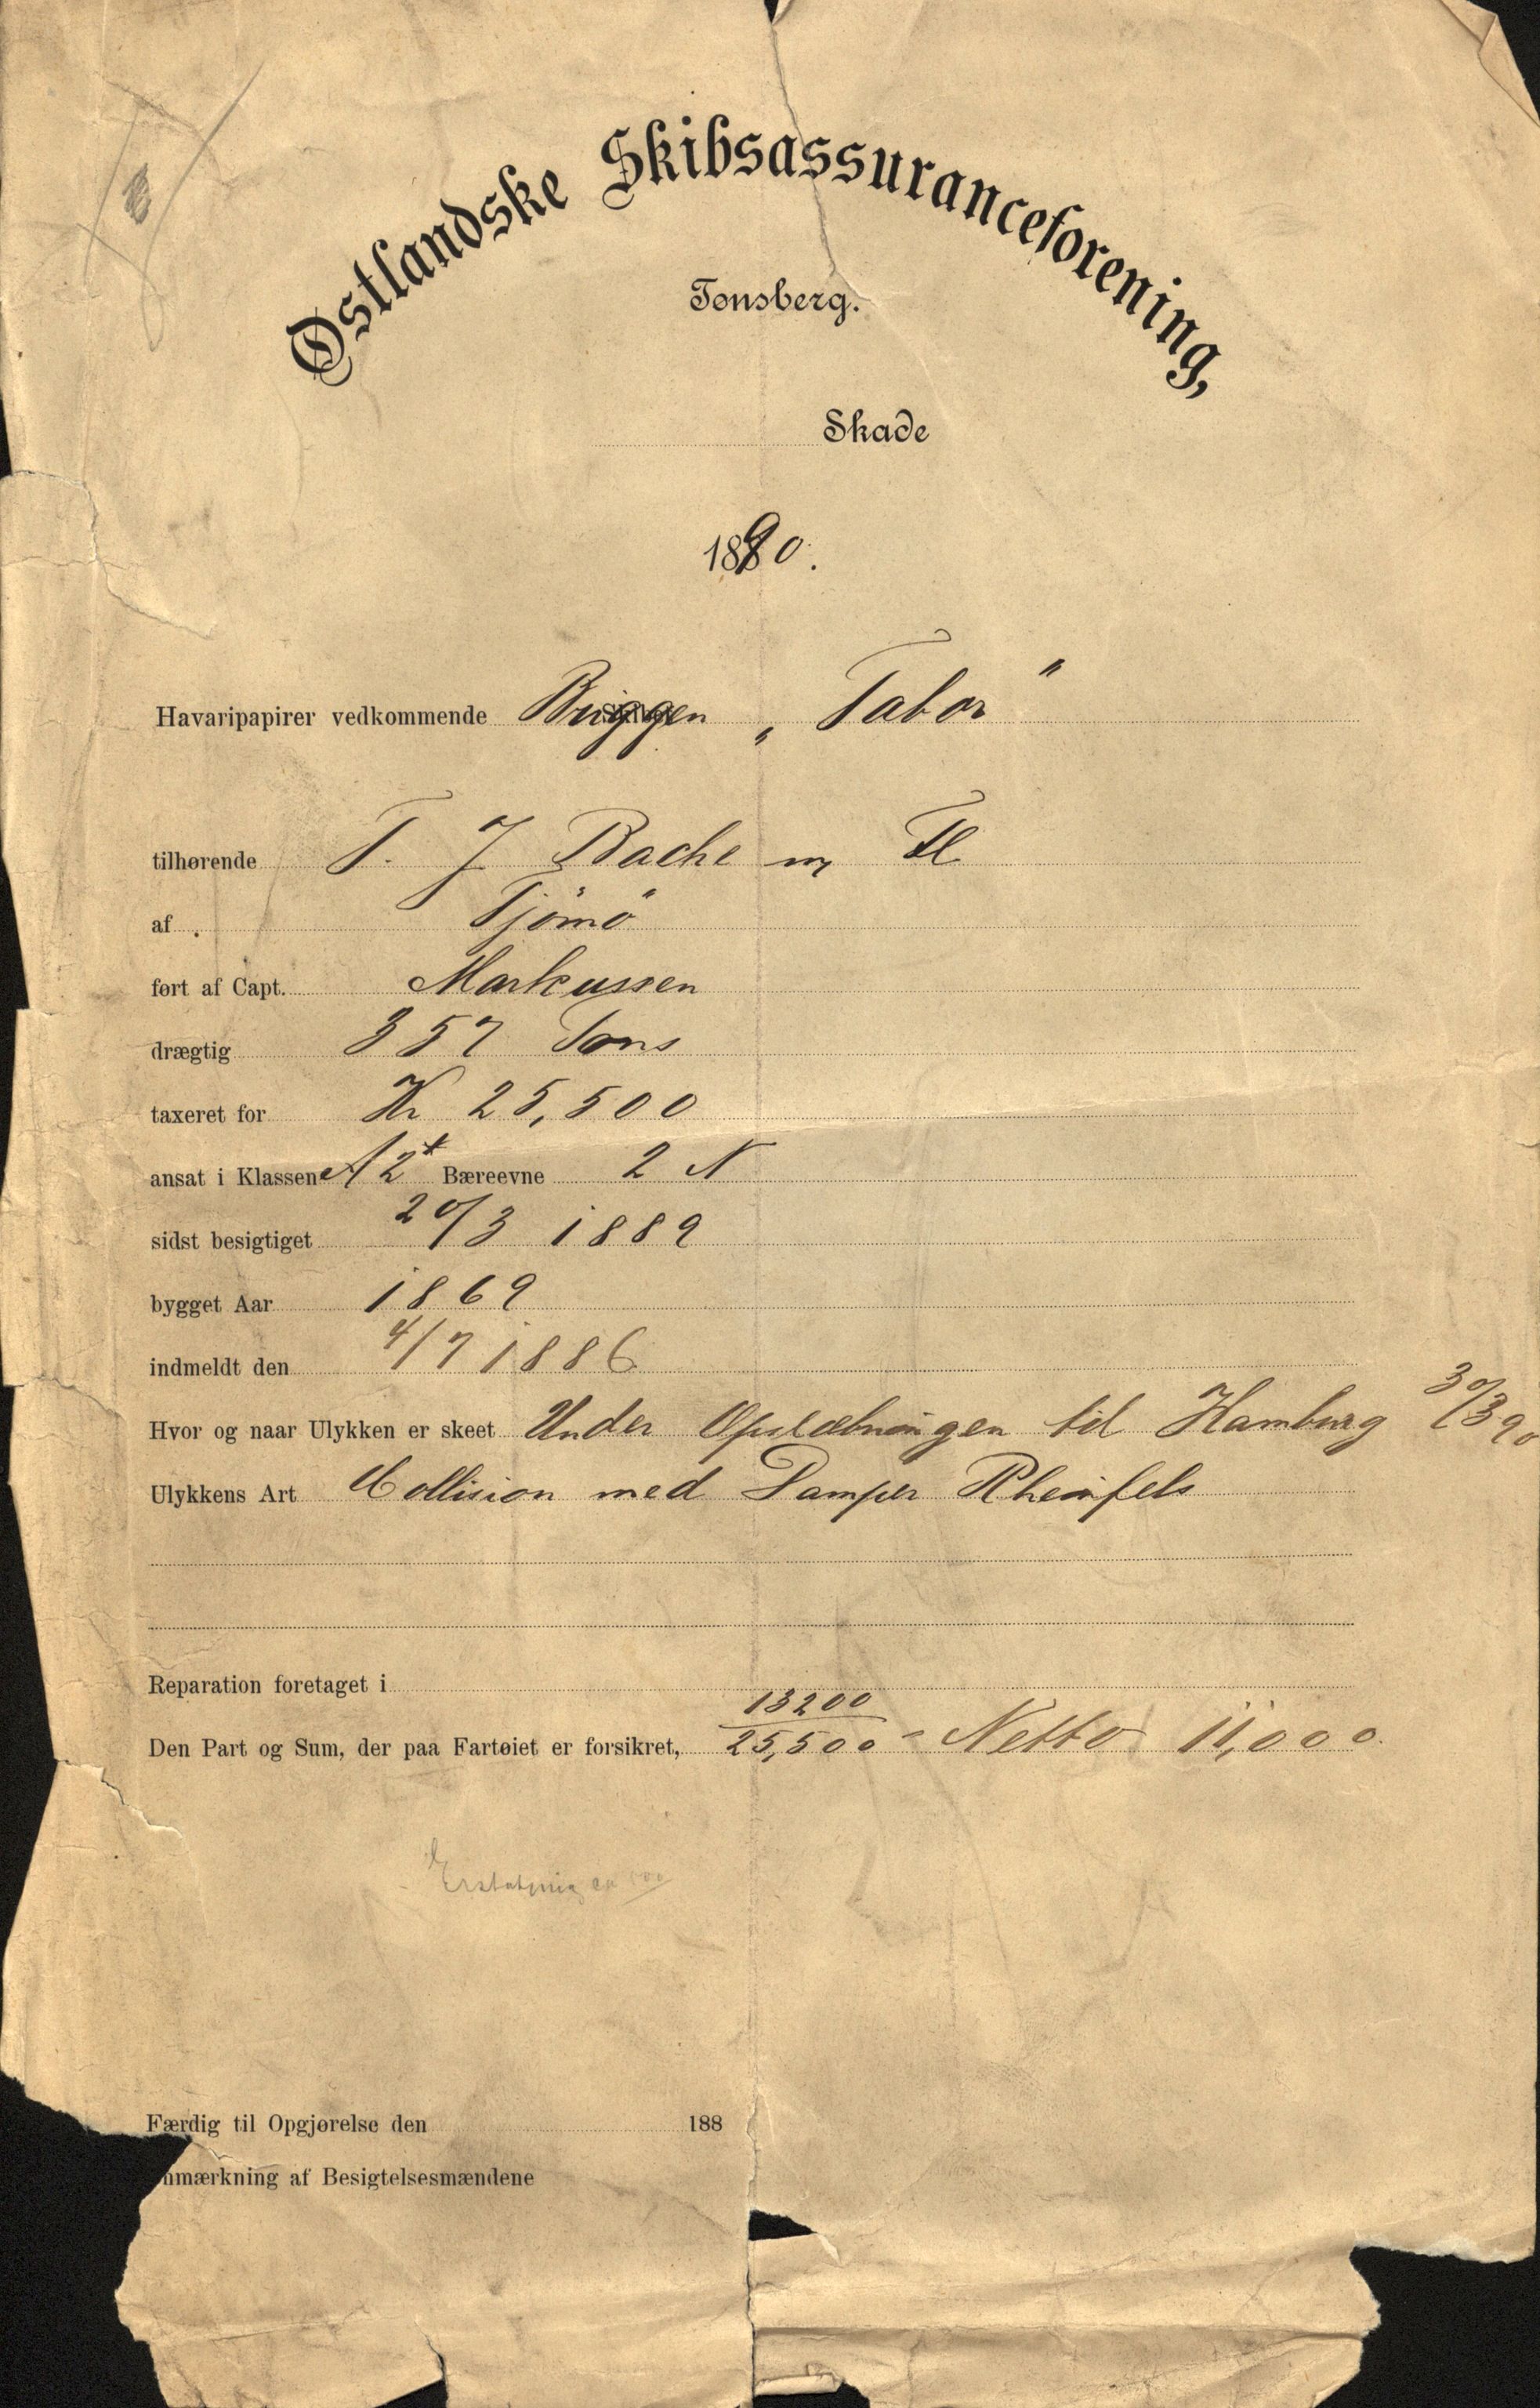 Østlandske Skibsassuranceforening,
Tønsberg.
Skade
1890.
Havaripapirer vedkommende Briggen „Tabor"
tilhørende T. J. Bache m Fl
af Tjömö
ført af Capt. Markussen
drægtig 357 Tons
taxeret for Kr 25,500
ansat i Klassen A 2* Bæreevne 2 N
sidst besigtiget 20/3 1889
bygget Aar 1869
indmeldt den 4/7 1886
Hvor og naar Ulykken er skeet Under Opslæbningen til Hamburg 30/3 90
Ulykkens Art Collision med Damper Rheinfels
Reparation foretaget i
Den Part og Sum, der paa Fartøiet er forsikret, 13200/25,500 = Netto 11,000.
Færdig til Opgjørelse den 188
nmærkning af Besigtelsesmændene